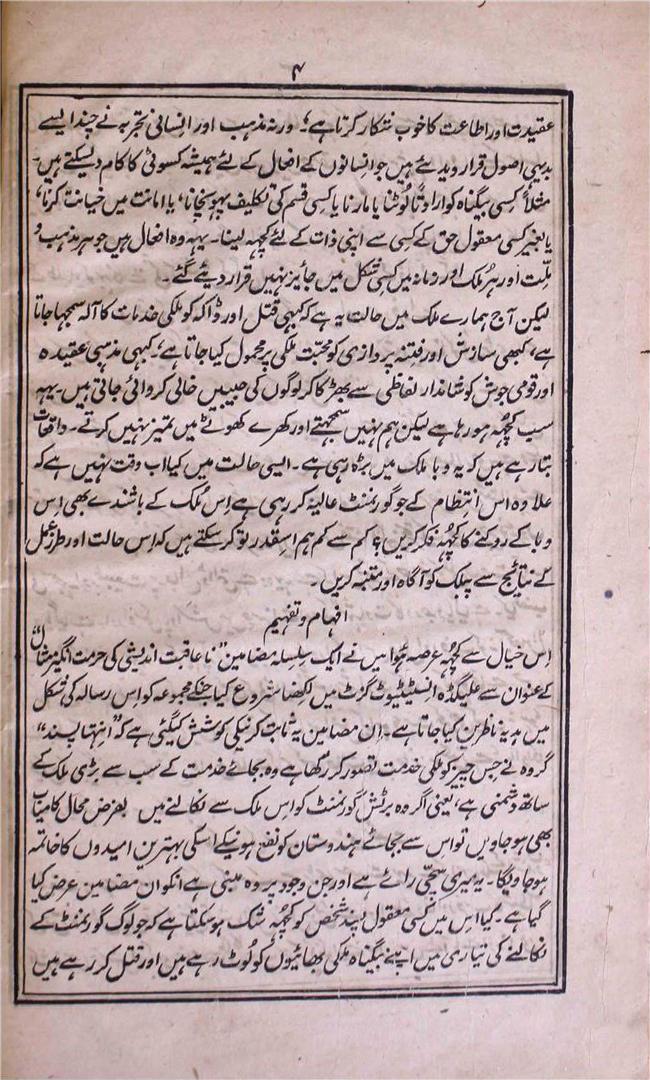 ۴
عقیدت اور اطاعت کا خوب شکار کرتا ہے؛ ورنہ مذہب اور انسانی تجربہ نے چند ایسے
بدیہی اصول قرار دیدیئے ہیں جو انسانوں کے افعال کے لئے ہمیشہ کسوٹی کا کام دیسکتے ہیں۔
مثلاً کسی بیگناہ کو ارادتاً لوٹنا یا مارنا یا کسی قسم کی تکلیف پہونچانا، یا امانت میں خیانت کرنا،
یا بغیر کسی معقول حق کے کسی سے اپنی ذات کے لئے کچہہ لینا۔ یہہ وہ افعال ہیں جو ہر مذہب و
ملّت اور ہر ملک اور زمانہ میں کسی شکل میں جایز نہیں قرار دیئے گئے۔
لیکن آج ہمارے ملک میں حالت یہ ہے کہ کبھی قتل اور ڈاکہ کو ملکی خدمات کا آلہ سمجہا جاتا
ہے، کبھی سازش اور فتنہ پردازی کو محبّت ملکی پر محمول کیا جاتا ہے؛ کبھی مذہبی عقیدہ
اور قومی جوش کو شاندار لفاظی سے بھڑکا کر لوگوں کی جیبیں خالی کروائی جاتی ہیں۔ یہہ
سب کچہہ ہو رہا ہے لیکن ہم نہیں سمجہتے اور کھرے کھوٹے میں تمیز نہیں کرتے۔ واقعات
بتا رہے ہیں کہ یہ وبا ملک میں بڑھ رہی ہے۔ ایسی حالت میں کیا اب وقت نہیں ہے کہ
علاوہ اس انتظام کے جو گورنمنٹ عالیہ کر رہی ہے اِس مُلک کے باشندے بھی اِس
وبا کے روکنے کا کچہہ فکر کریں؟ کم سے کم ہم اسقدر تو کر سکتے ہیں کہ اِس حالت اور طرز عمل
کے نتائج سے پبلک کو آگاہ اور متنبہ کریں۔
افہام و تفہیم
اِس خیال سے کچہہ عرصہ ہوا میں نے ایک سلسلہ مضامین "ناعاقبت اندیشی کی حسرت انگیز مثال"
کے عنوان سے علیگڈہ انسٹیٹیوٹ گزٹ میں لکھنا شروع کیا جنکے مجموعہ کو اِس رسالہ کی شکل
میں ہدیۂ ناظرین کیا جاتا ہے۔ اِن مضامین میں یہ ثابت کرنیکی کوشش کیگئی ہے کہ "انتہا پسند"
گروہ نے جس چیز کو ملکی خدمت تصور کر رکھا ہے وہ بجائے خدمت کے سب سے بڑی ملک کے
ساتھ دشمنی ہے، یعنی اگر وہ برٹش گورنمنٹ کو اس ملک سے نکالنے میں بفرض محال کامیاب
بھی ہو جاویں تو اس سے بجائے ہندوستان کو نفع ہونیکے اسکی بہترین امیدوں کا خاتمہ
ہو جاویگا۔ یہ میری سچّی رائے ہے اور جن وجوہ پر وہ مبنی ہے انکو ان مضامین عرض کیا
گیا ہے۔ کیا اس میں کسی معقول پسند شخص کو کچہہ شک ہو سکتا ہے کہ جو لوگ گورنمنٹ کے
نکالنے کی تیاری میں اپنے بیگناہ ملکی بھائیوں کو لُوٹ رہے ہیں اور قتل کر رہے ہیں